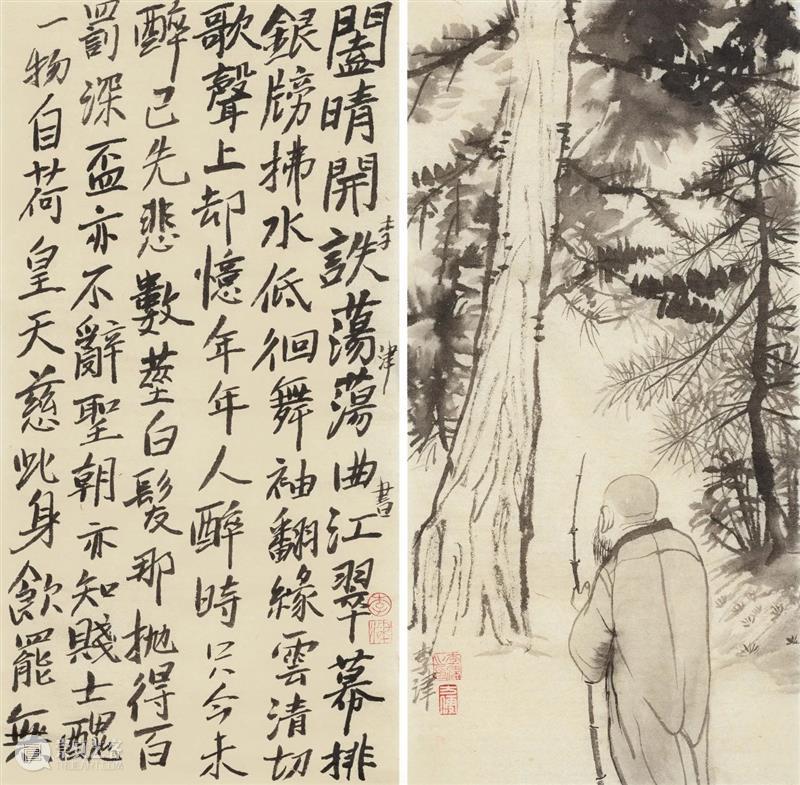 闔晴開詄蕩蕩曲江翠幕排
銀牓拂水低徊舞袖翻緣雲清切
歌聲上却憶年年人醉時只今未
醉已先悲數莖白髮那拋得百
罰深盃亦不辭聖朝亦知賤士醜
一物自荷皇天慈此身飲罷無
李津書
李津
李津